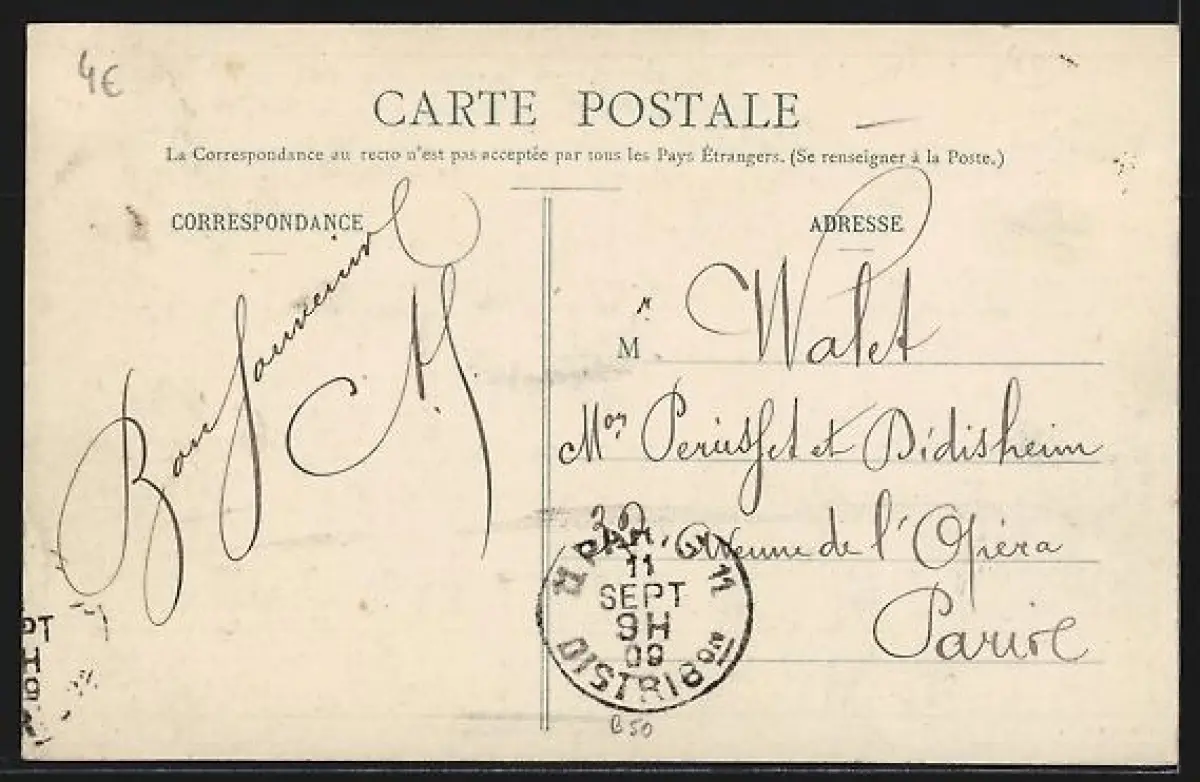 4€
CARTE POSTALE
La Correspondance au recto n'est pas acceptée par tous les Pays Étrangers. (Se renseigner à la Poste.)
CORRESPONDANCE
Bon Souvenir
ADRESSE
Mr Walet
Mon Perusset et Didisheim
Avenue de l'Opéra
Paris
11
SEPT
9H
09
DISTRIBon
PT
H
B50